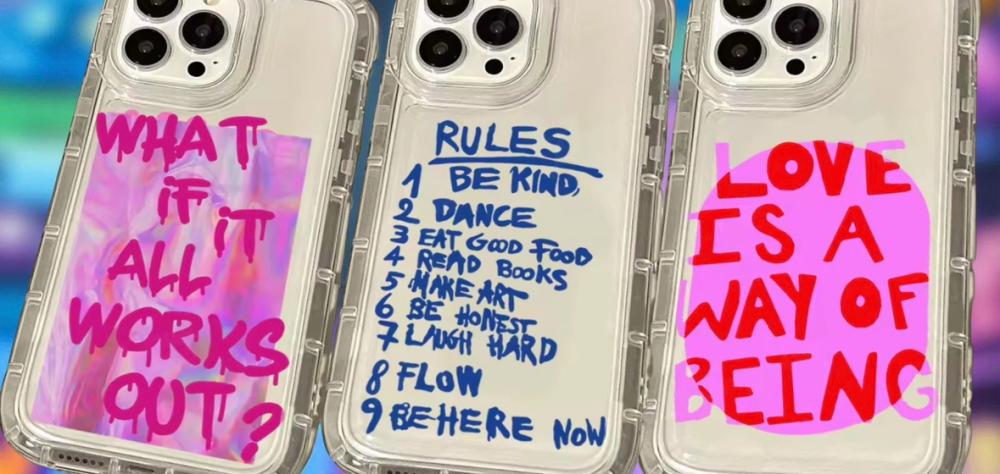 WHAT
iF iT
ALL
WORKS
OUT?
RULES
1 BE KIND,
2 DANCE
3 EAT GOOD FOOD
4 READ BOOKS
5 MAKE ART
6 BE HONEST
7 LAUGH HARD
8 FLOW
9 BE HERE NOW
LOVE
IS A
WAY OF
BEING